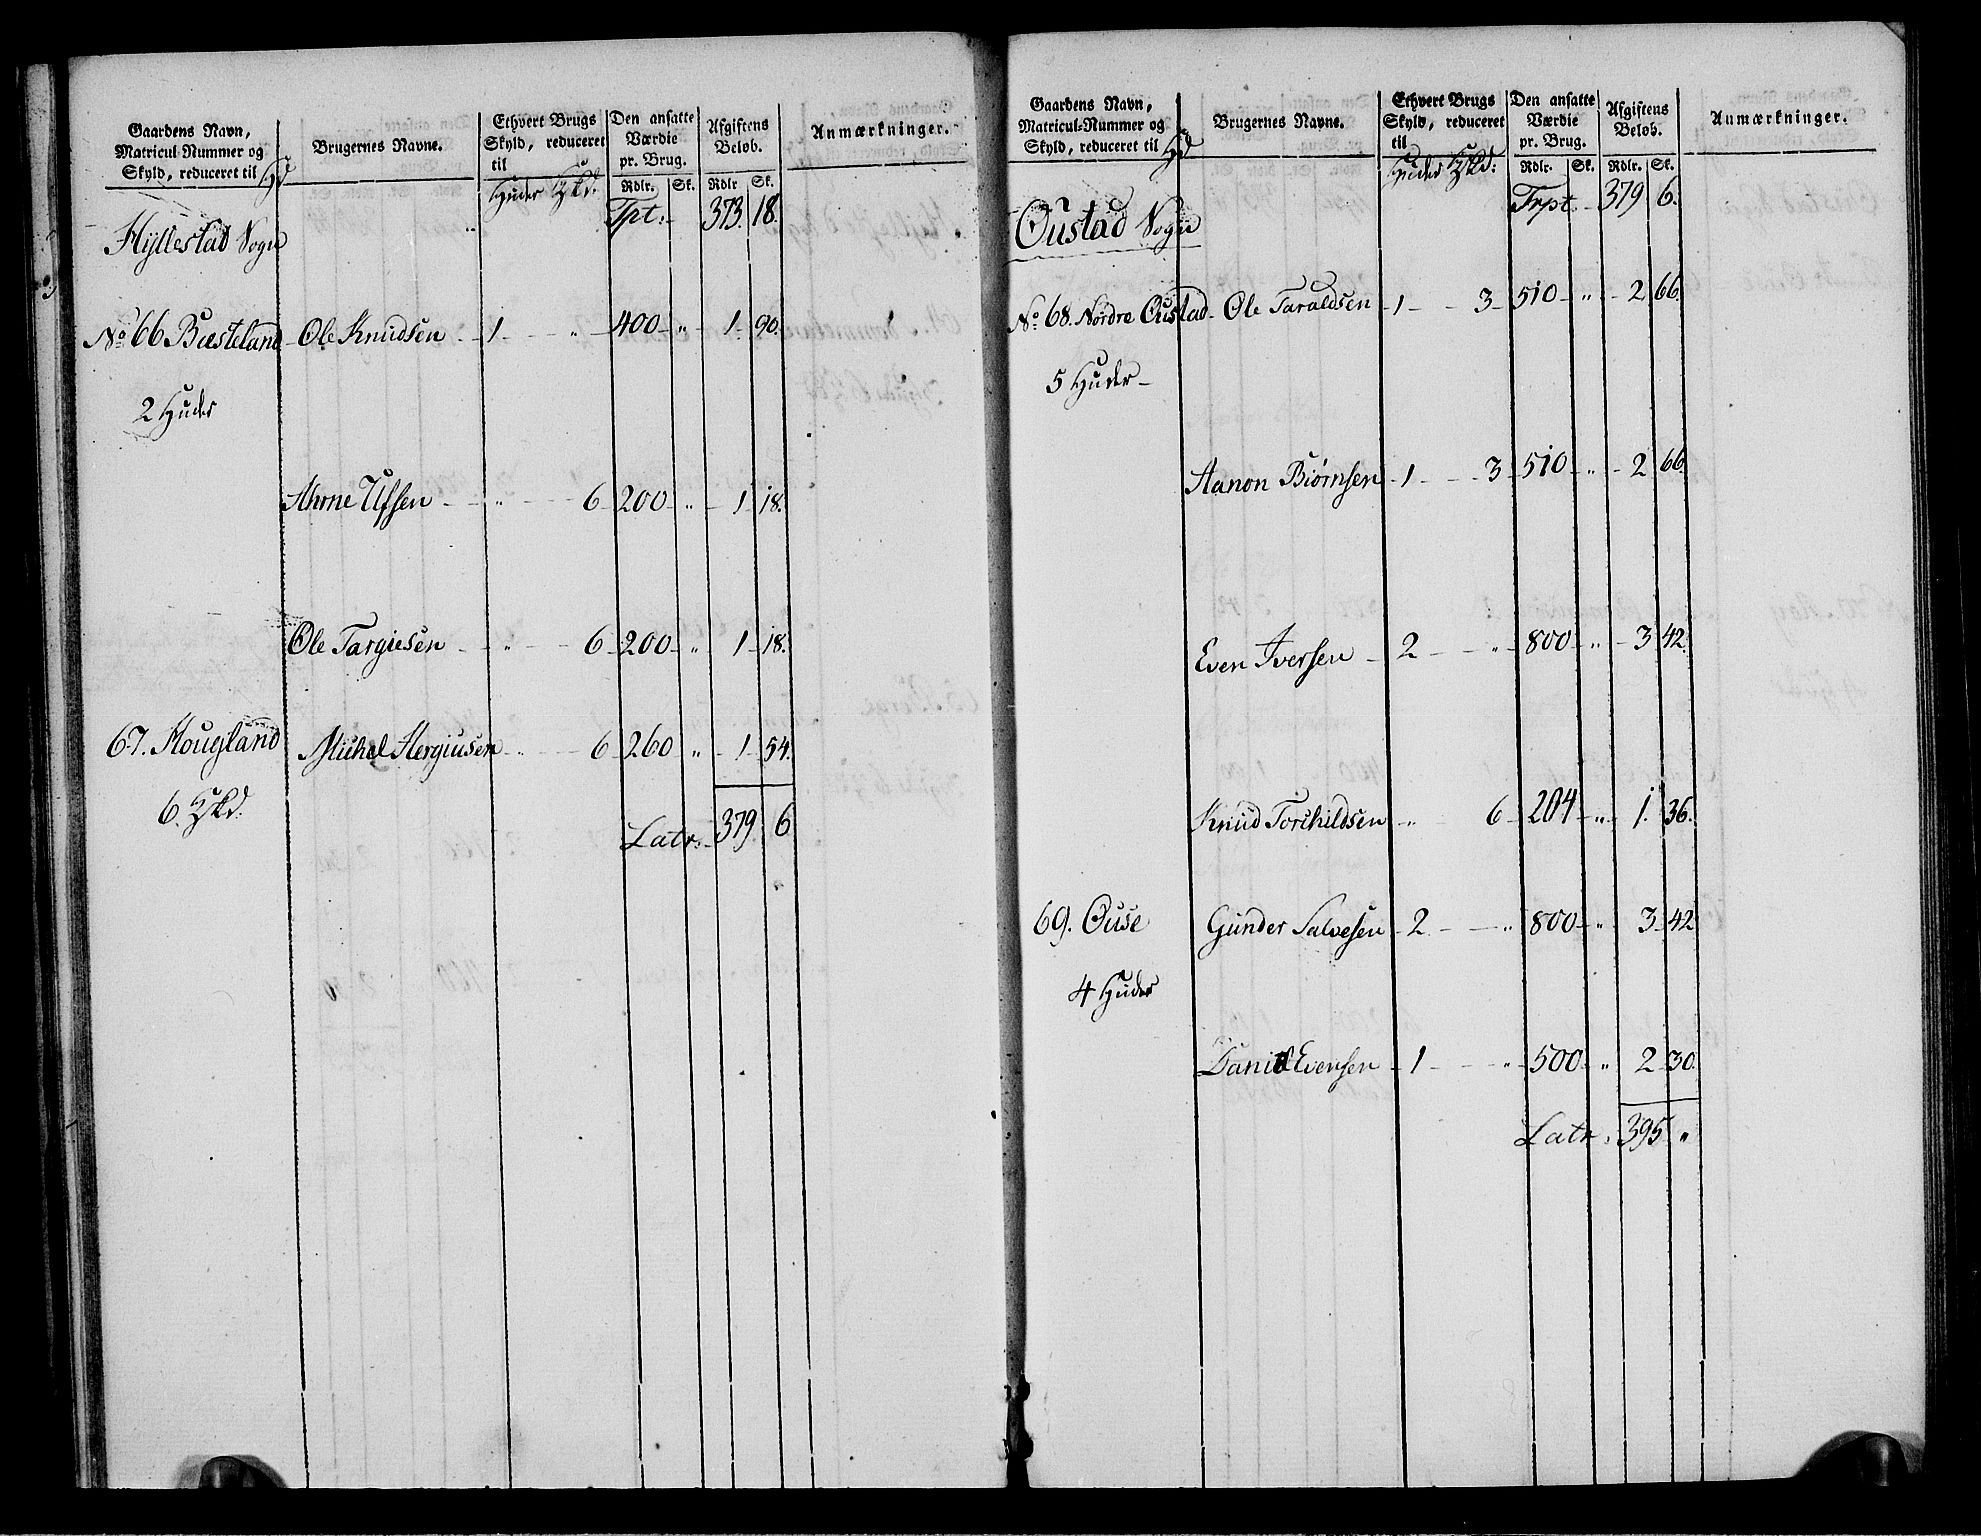 Gaardens Navn, Matricul-Nummer og Skyld, reduceret til Hd
Brugernes Navne.
Ethvert Brugs Skyld, reduceret til Huder Hkd:
Den ansatte Værdie pr. Brug. Rdlr. Sk.
Afgiftens Beløb. Rdlr Sk.
Anmærkninger.
Tpt: 373. 18.
Hyllestad Sogn
No 66 Bæsteland Ole Knudsen 1 " 400 " 1 90.
2 Huder
Ahrne Ufsen " 6 200 " 1 18.
Ole Targiesen " 6 200 " 1 18.
67. Hougland Michel Hergiusen " 6 260 " 1 54.
6 Hkd.
Latr: 379. 6
Gaardens Navn, Matricul-Nummer og Skyld, reduceret til Hd
Brugernes Navne.
Ethvert Brugs Skyld, reduceret til Huder Hkd:
Den ansatte Værdie pr. Brug. Rdlr. Sk.
Afgiftens Beløb. Rdlr. Sk.
Anmærkninger.
Trpt: 379 6.
Oustad Sogn
No 68. Nordre Oustad Ole Taraldsen 1 3 510 " 2 66.
5 Huder
Aanon Biørnsen 1 3 510 " 2 66.
Even Iversen 2 " 800 " 3 42.
Knud Torchildsen " 6 204 " 1. 36.
69. Ouse Gunder Salvesen 2 " 800 " 3 42
4 Huder
Daniel Evensen 1 " 500 " 2 30.
Latr: 395 "